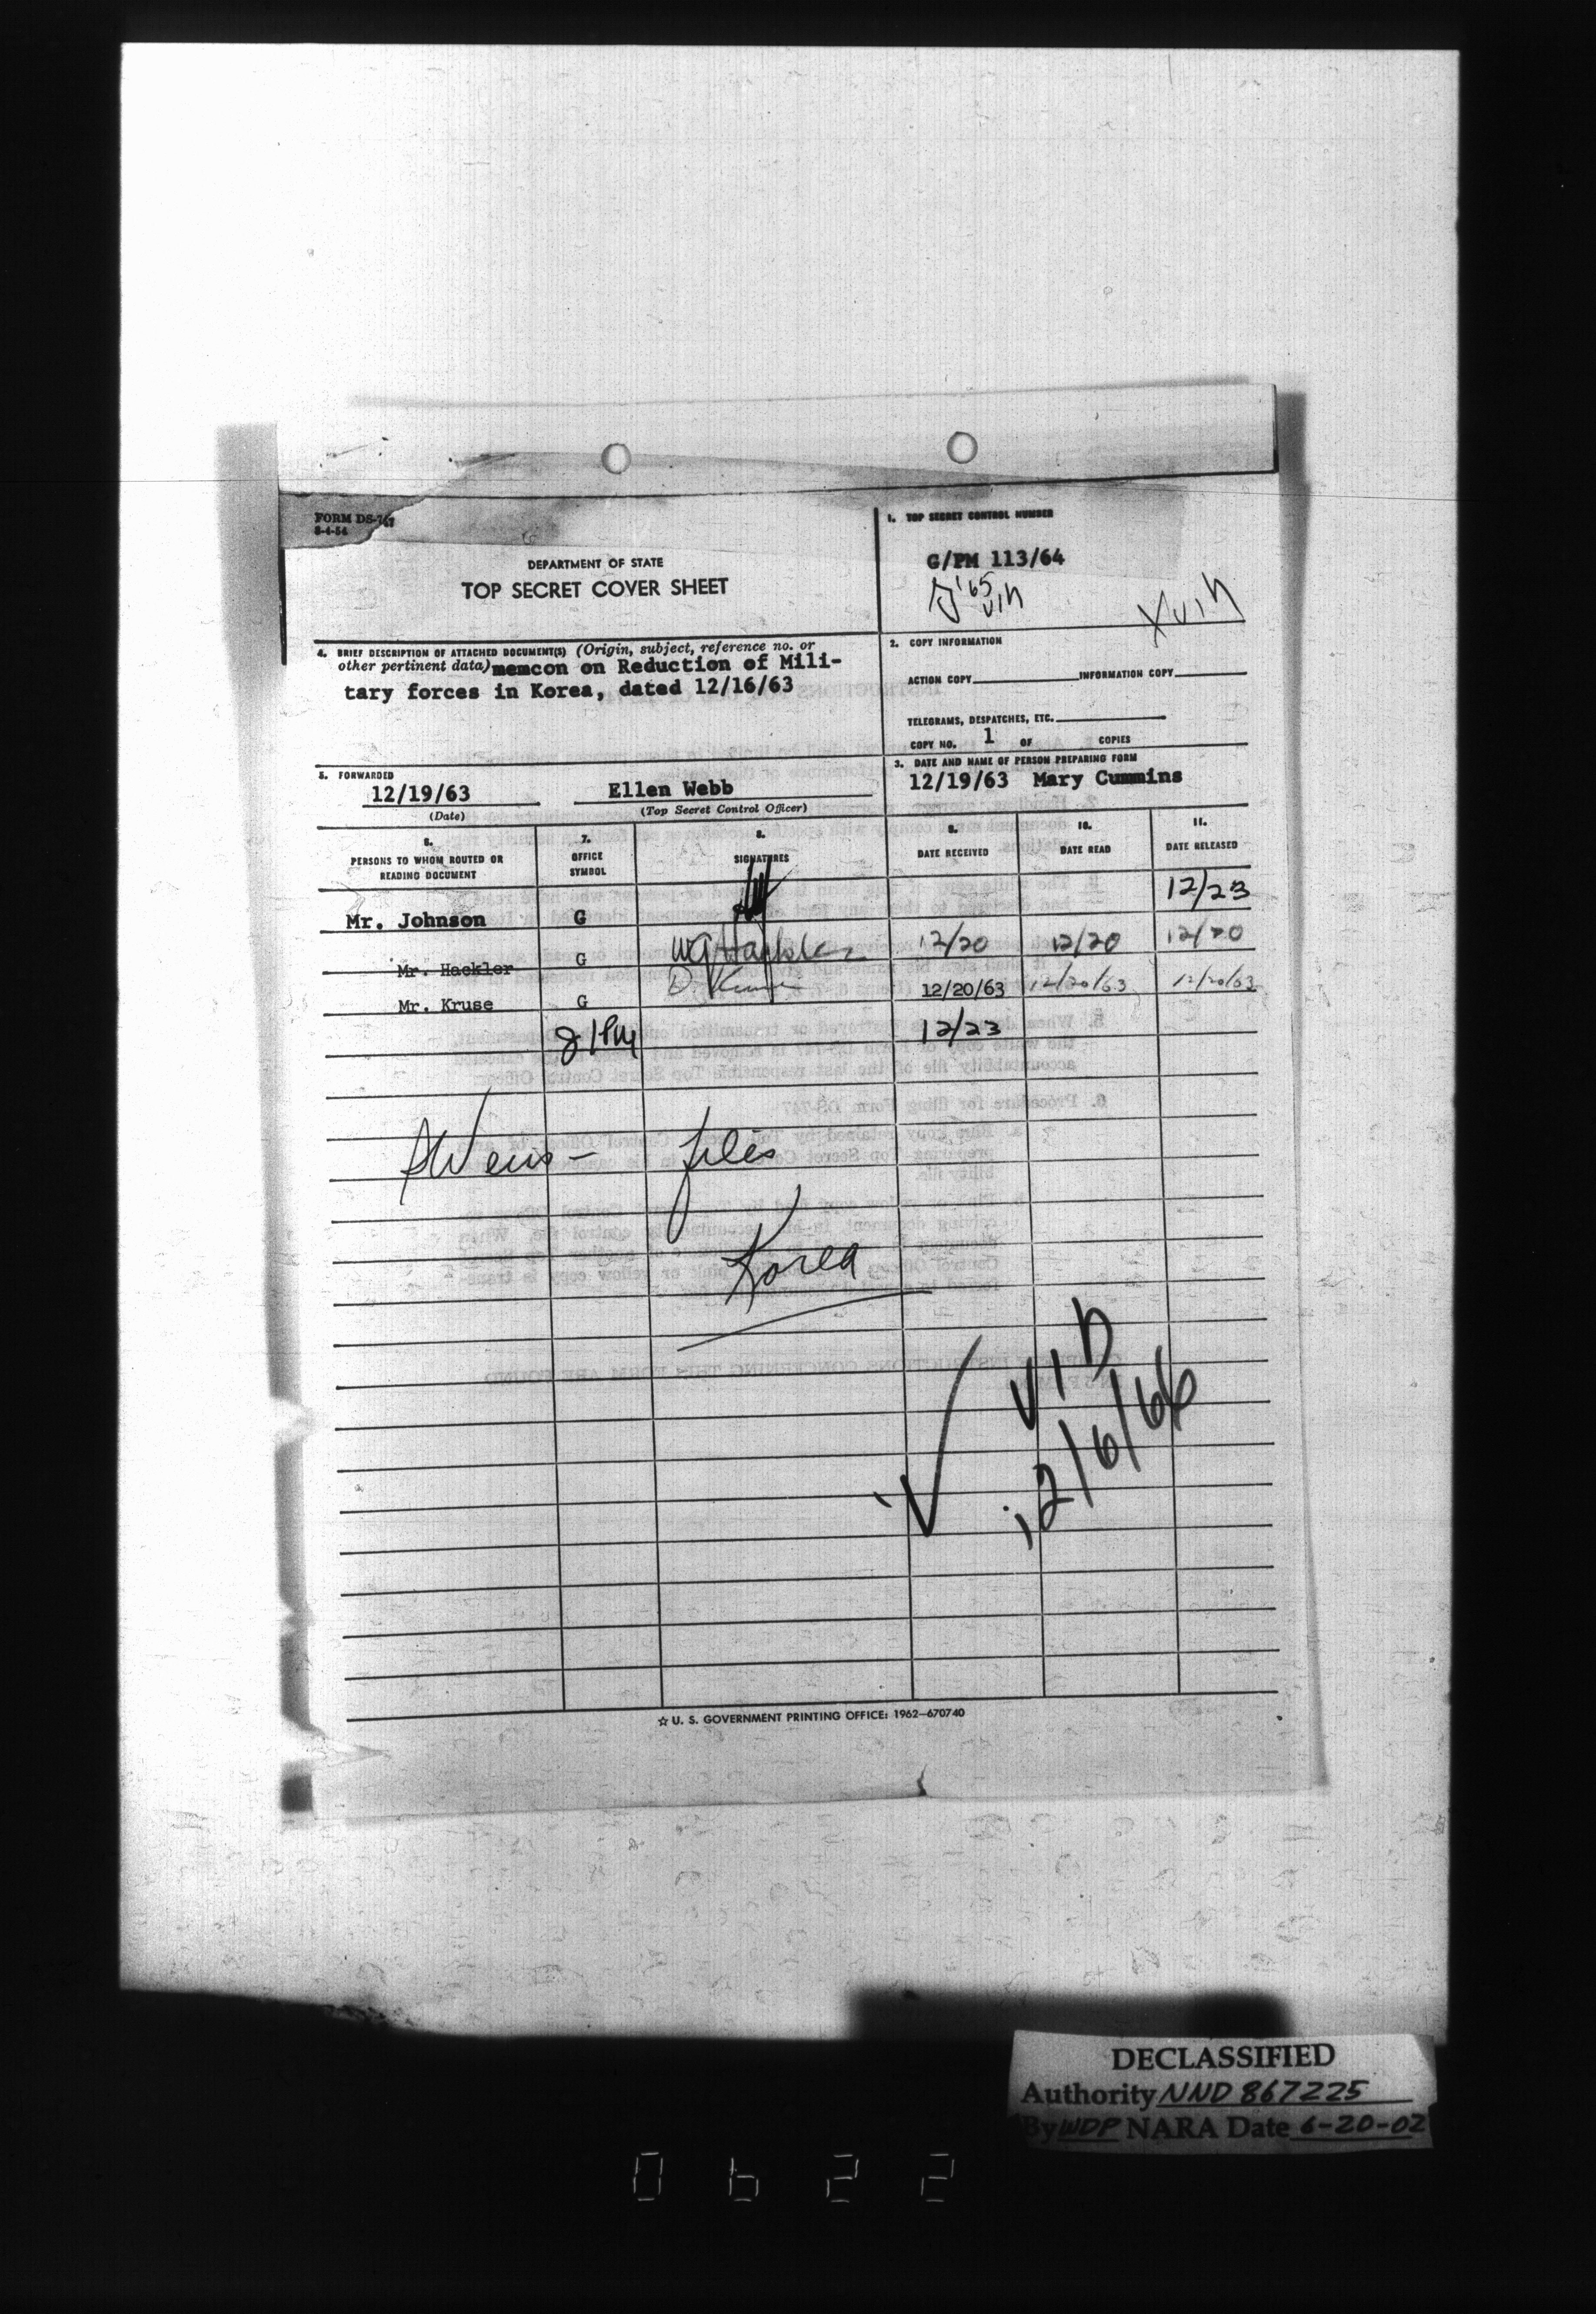 FORM DS-747
8-4-54
DEPARTMENT OF STATE
TOP SECRET COVER SHEET
1. TOP SECRET CONTROL NUMBER
G/PM 113/64
'65
2. COPY INFORMATION
ACTION COPY INFORMATION COPY
TELEGRAMS, DESPATCHES, ETC.
COPY NO. 1 OF COPIES
4. BRIEF DESCRIPTION OF ATTACHED DOCUMENT(S) (Origin, subject, reference no. or
other pertinent data) memcon on Reduction of Mili-
tary forces in Korea, dated 12/16/63
3. DATE AND NAME OF PERSON PREPARING FORM
12/19/63 Mary Cummins
5. FORWARDED
12/19/63 Ellen Webb
(Date) (Top Secret Control Officer)
6. PERSONS TO WHOM ROUTED OR
READING DOCUMENT
7. OFFICE
SYMBOL
8. SIGNATURES
9. DATE RECEIVED
10. DATE READ
11. DATE RELEASED
Mr. Johnson G 12/23
Mr. Hackler G WGHackler 12/20 12/20 12/20
Mr. Kruse G D. Kruse 12/20/63 12/20/63 12/20/63
G/PM 12/23
files
Korea
12/6/66
☆ U. S. GOVERNMENT PRINTING OFFICE: 1962—670740
DECLASSIFIED
Authority NND 867225
By WDP NARA Date 6-20-02
0622